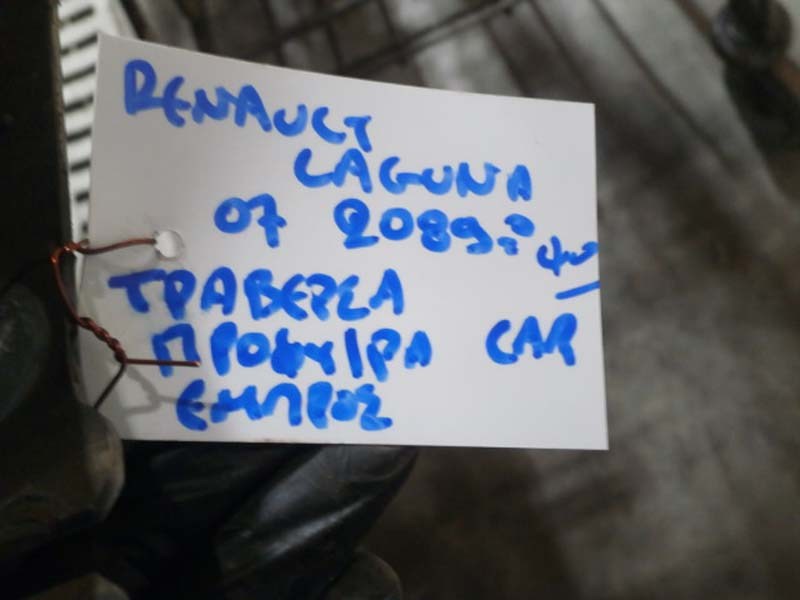 RENAULT
LAGUNA
07 2089
ΤΡΑΒΕΡΣΑ
CAR
ΕΜΠΡΟΣ